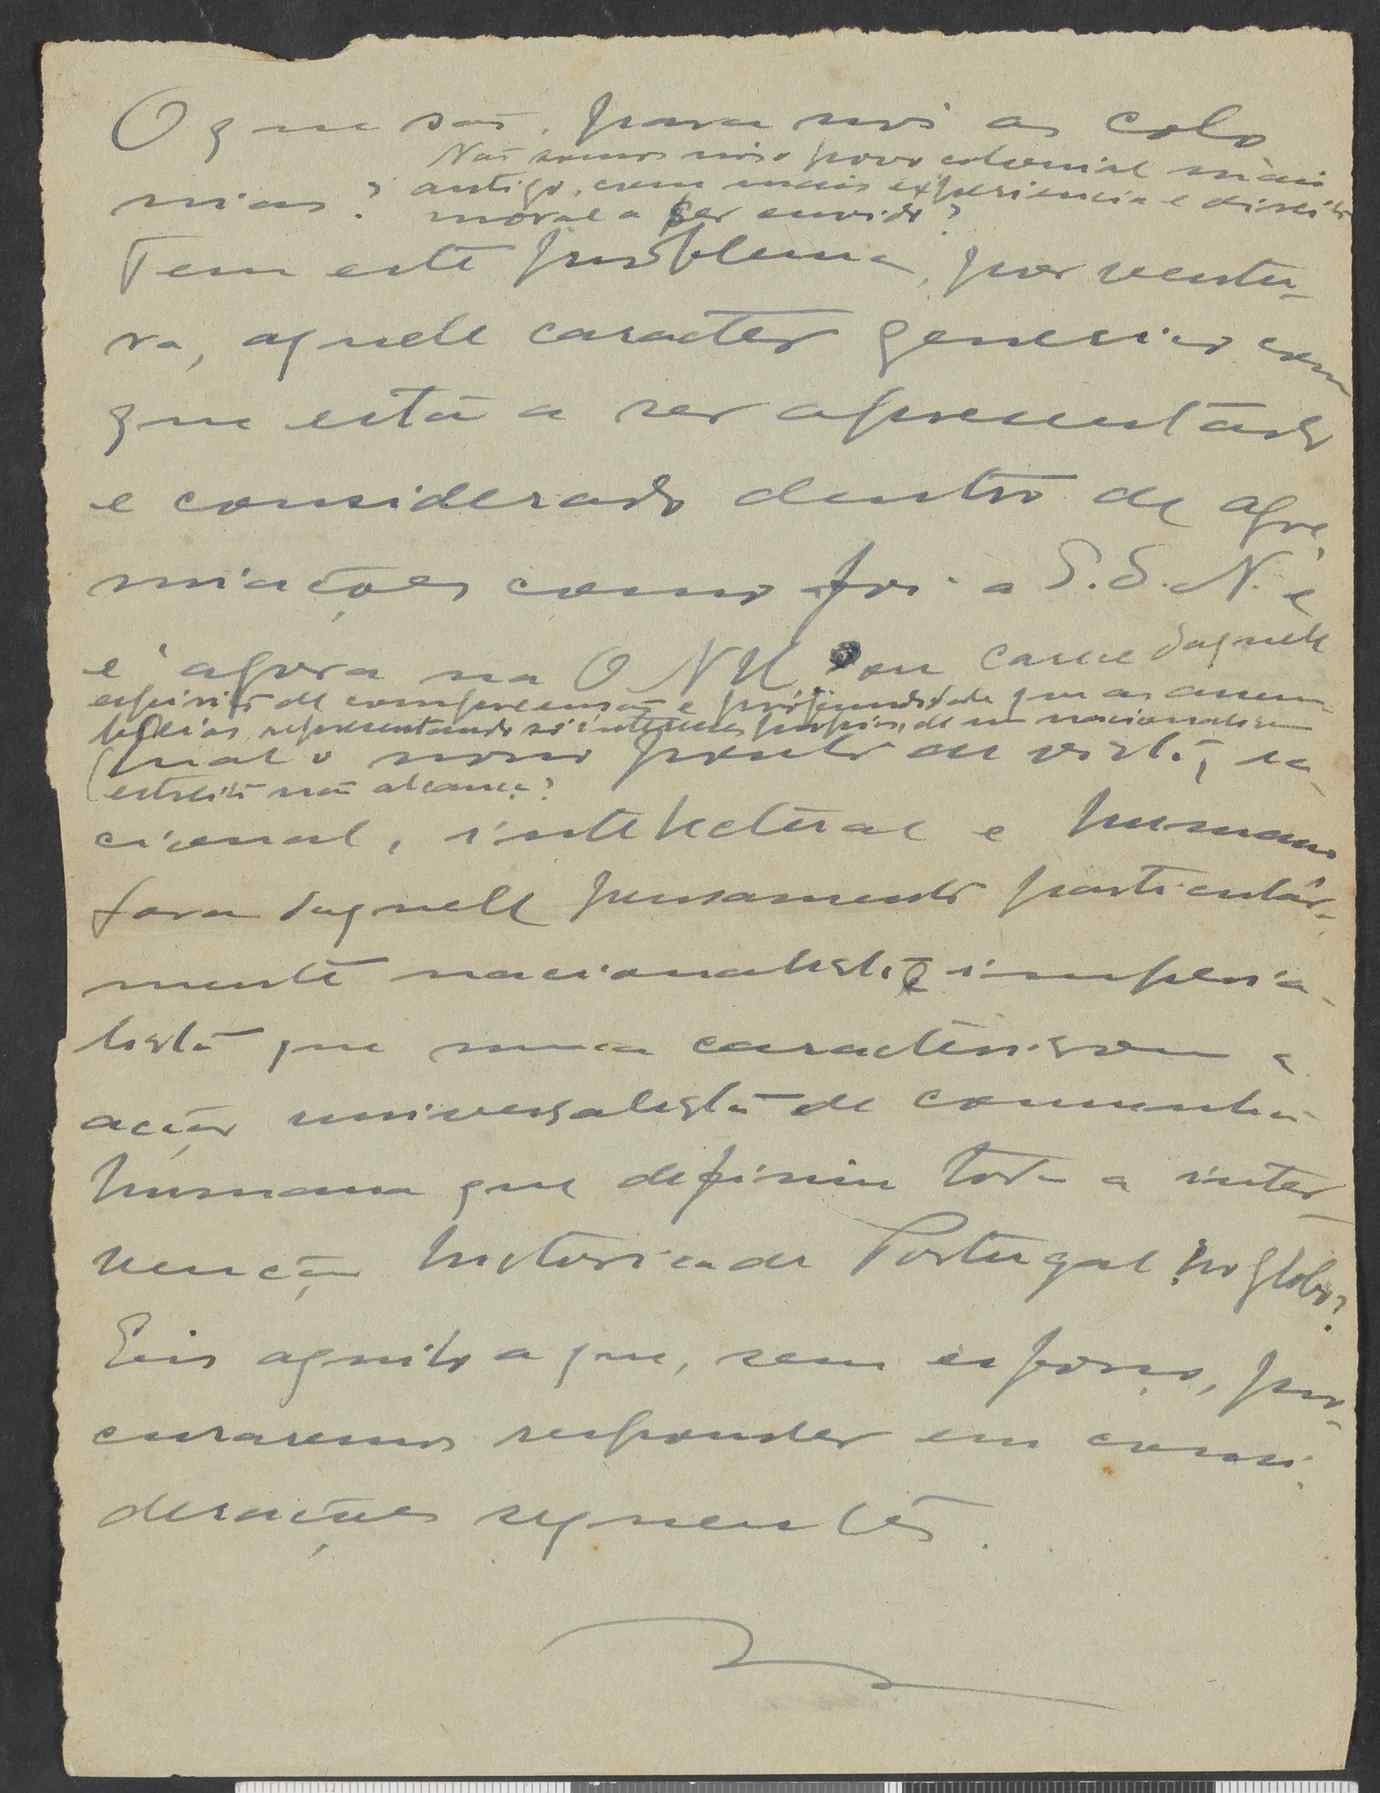 O que são, para nós as colo
Não somos nós o povo colonial mais
nias? antigo, com mais experiencia e direito
moral a ser ouvido?
Tem este problema, por ventu-
ra, aquele caracter generico com
que está a ser apresentado
e considerado dentro de agre-
miações como foi a S.D.N. e
é agora na ONU, ou carece daquele
espirito de compreensão e profundidade que as assem-
bleias representando só interesses proprios, de um nacionalismo
Qual o nosso ponto de vista, ra-
(estreito não alcança?
cional, intelectual e humano
fora daquele pensamento particular-
mente nacionalista e imperia-
lista que nunca caracterisou a
acção universalista de comunhão
humana que definiu toda a inter-
venção historica de Portugal no globo?
Eis aquilo a que, sem esforço, pro-
curaremos responder em consi-
derações seguentes.